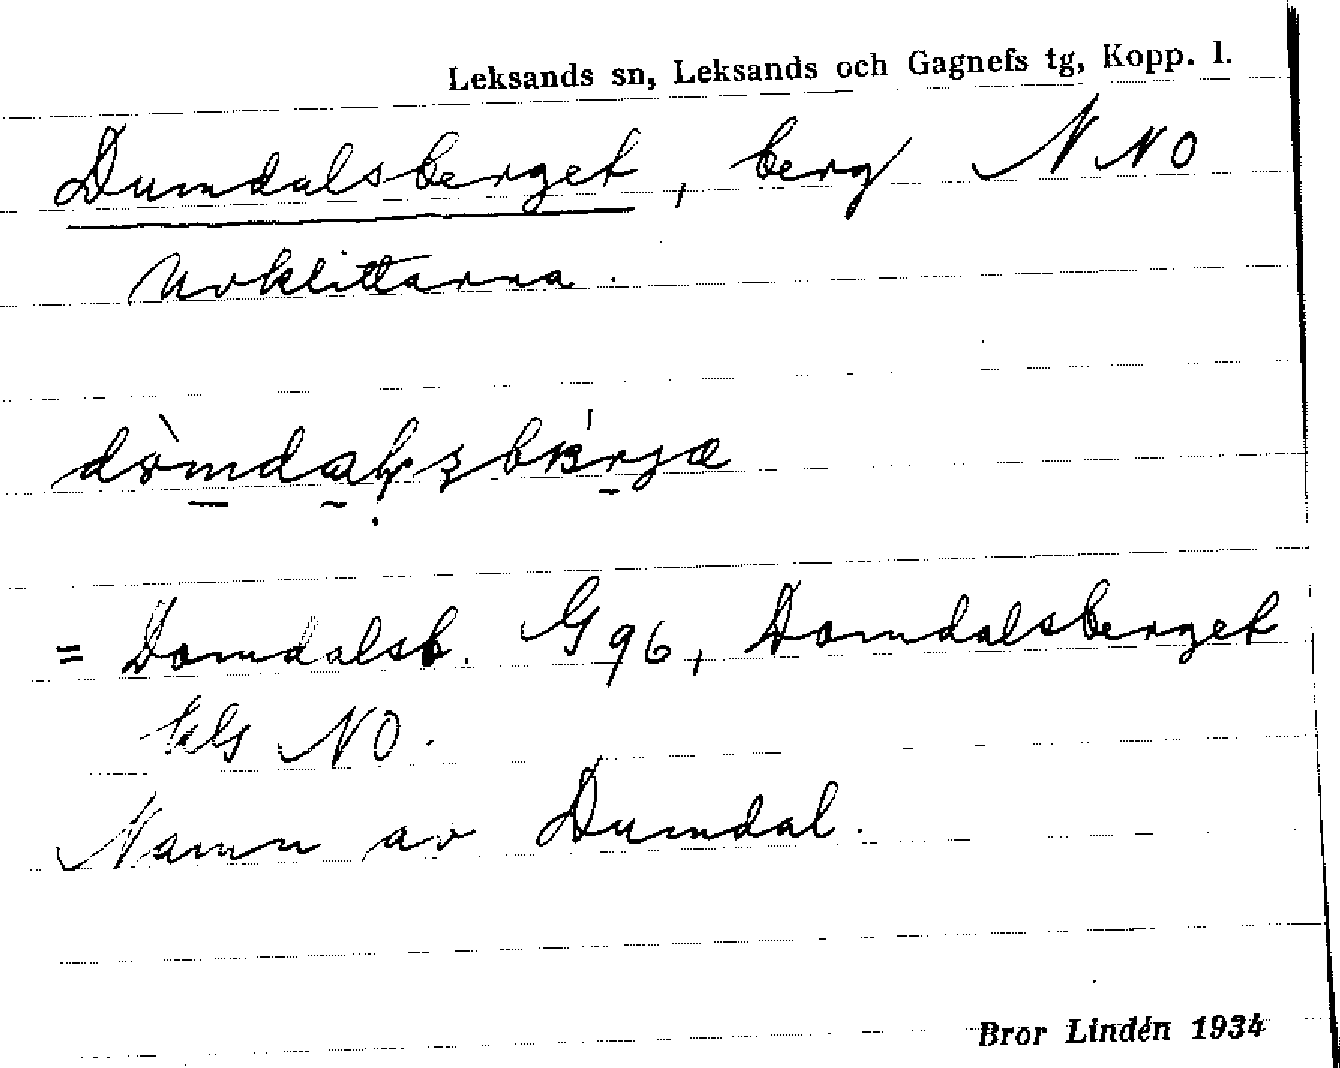 Leksands sn, Leksands och Gagnefs tg, Kopp. l.
Dumdalsberget, berg NNO
Noklittarna.
= Domdalsb. G96, Domdalsberget
NO.
Namn av Dumdal.
Bror Lindén 1934